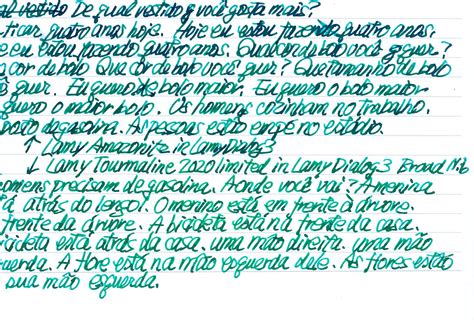 al vestido De qual vestido você gosta mais?
ficar quatro anos hoje. Hoje eu estou fazendo quatro anos.
e eu estou fazendo quatro anos. Qual cor de bolo você quer?
a cor de bolo Que cor de bolo você quer? Que tamanho de bolo
ê quer. Eu quero de bolo maior. Eu quero o bolo maior
quero o maior bolo. Os homens cozinham no trabalho.
posto de gasolina. As pessoas estão em pé no estádio.
↑ Lamy Amazonite in Lamy Dialog 3
↓ Lamy Tourmaline 2020 limited in Lamy Dialog 3 Broad Nib
omens precisam de gasolina. Aonde você vai? A menina
á atrás do lençol. O menino está em frente à árvore.
frente da árvore. A bicicleta está na frente da casa.
icicleta está atrás da casa. uma mão direita. uma mão
uerda. A flore está na mão esquerda dele. As flores estão
sua mão esquerda.